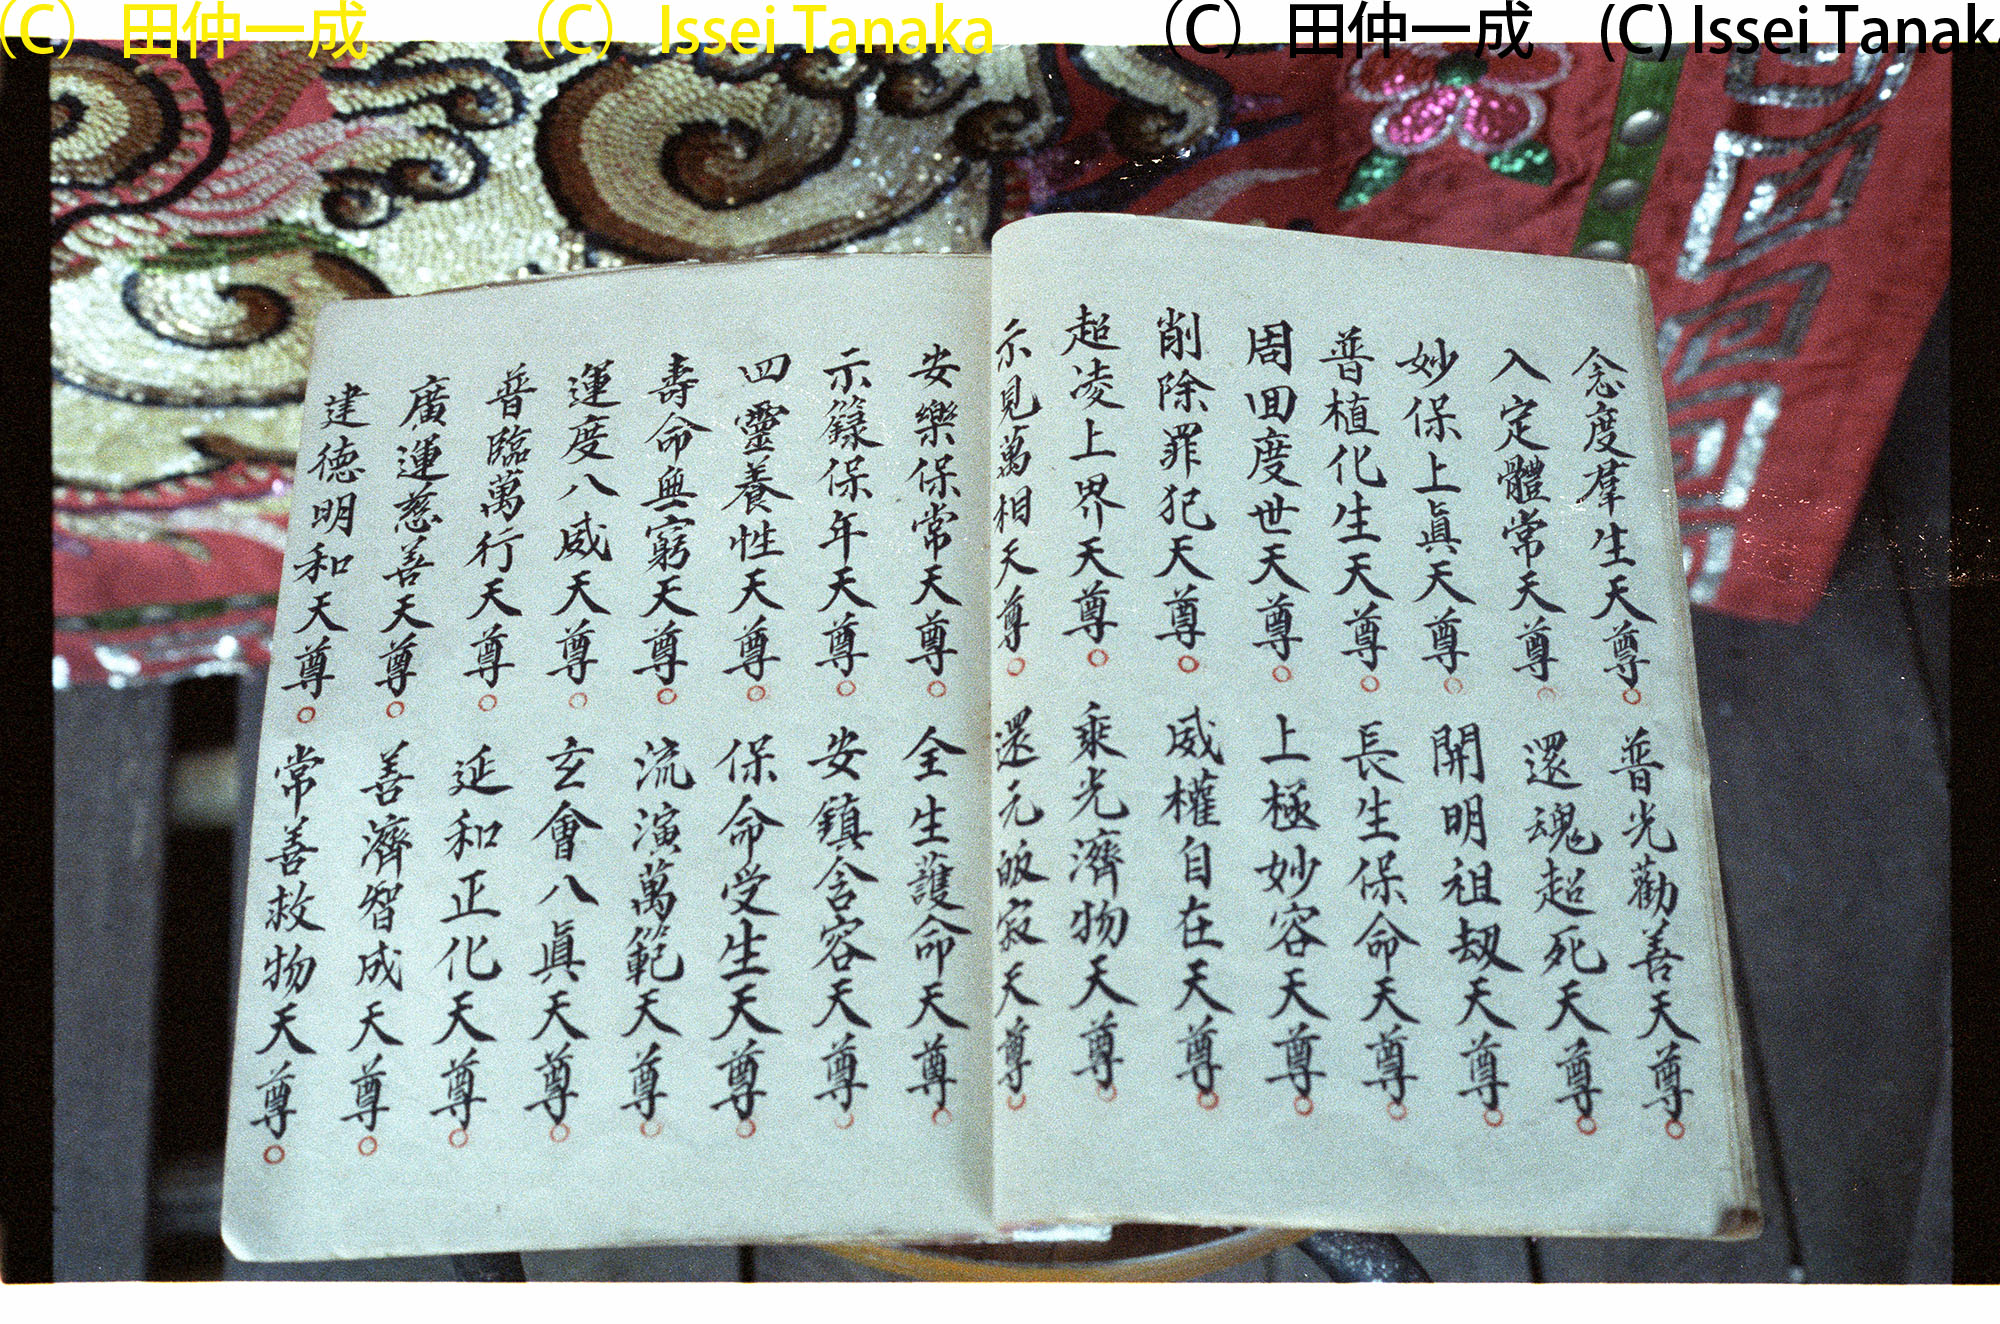 (C) 田仲一成 (C) Issei Tanaka (C) 田仲一成 (C) Issei Tanaka
念度羣生天尊○ 普光勸善天尊○
入定體常天尊○ 還魂超死天尊○
妙保上眞天尊○ 開明祖刼天尊○
普植化生天尊○ 長生保命天尊○
周囬度世天尊○ 上極妙容天尊○
削除罪犯天尊○ 威權自在天尊○
超凌上界天尊○ 乘光濟物天尊○
示見萬相天尊○ 還元皈寂天尊○
安樂保常天尊○ 全生護命天尊○
示籙保年天尊○ 安鎮含容天尊○
四靈養性天尊○ 保命受生天尊○
壽命無窮天尊○ 流演萬範天尊○
運度八威天尊○ 玄會八眞天尊○
普臨萬行天尊○ 延和正化天尊○
廣運慈善天尊○ 善濟智成天尊○
建德明和天尊○ 常善救物天尊○